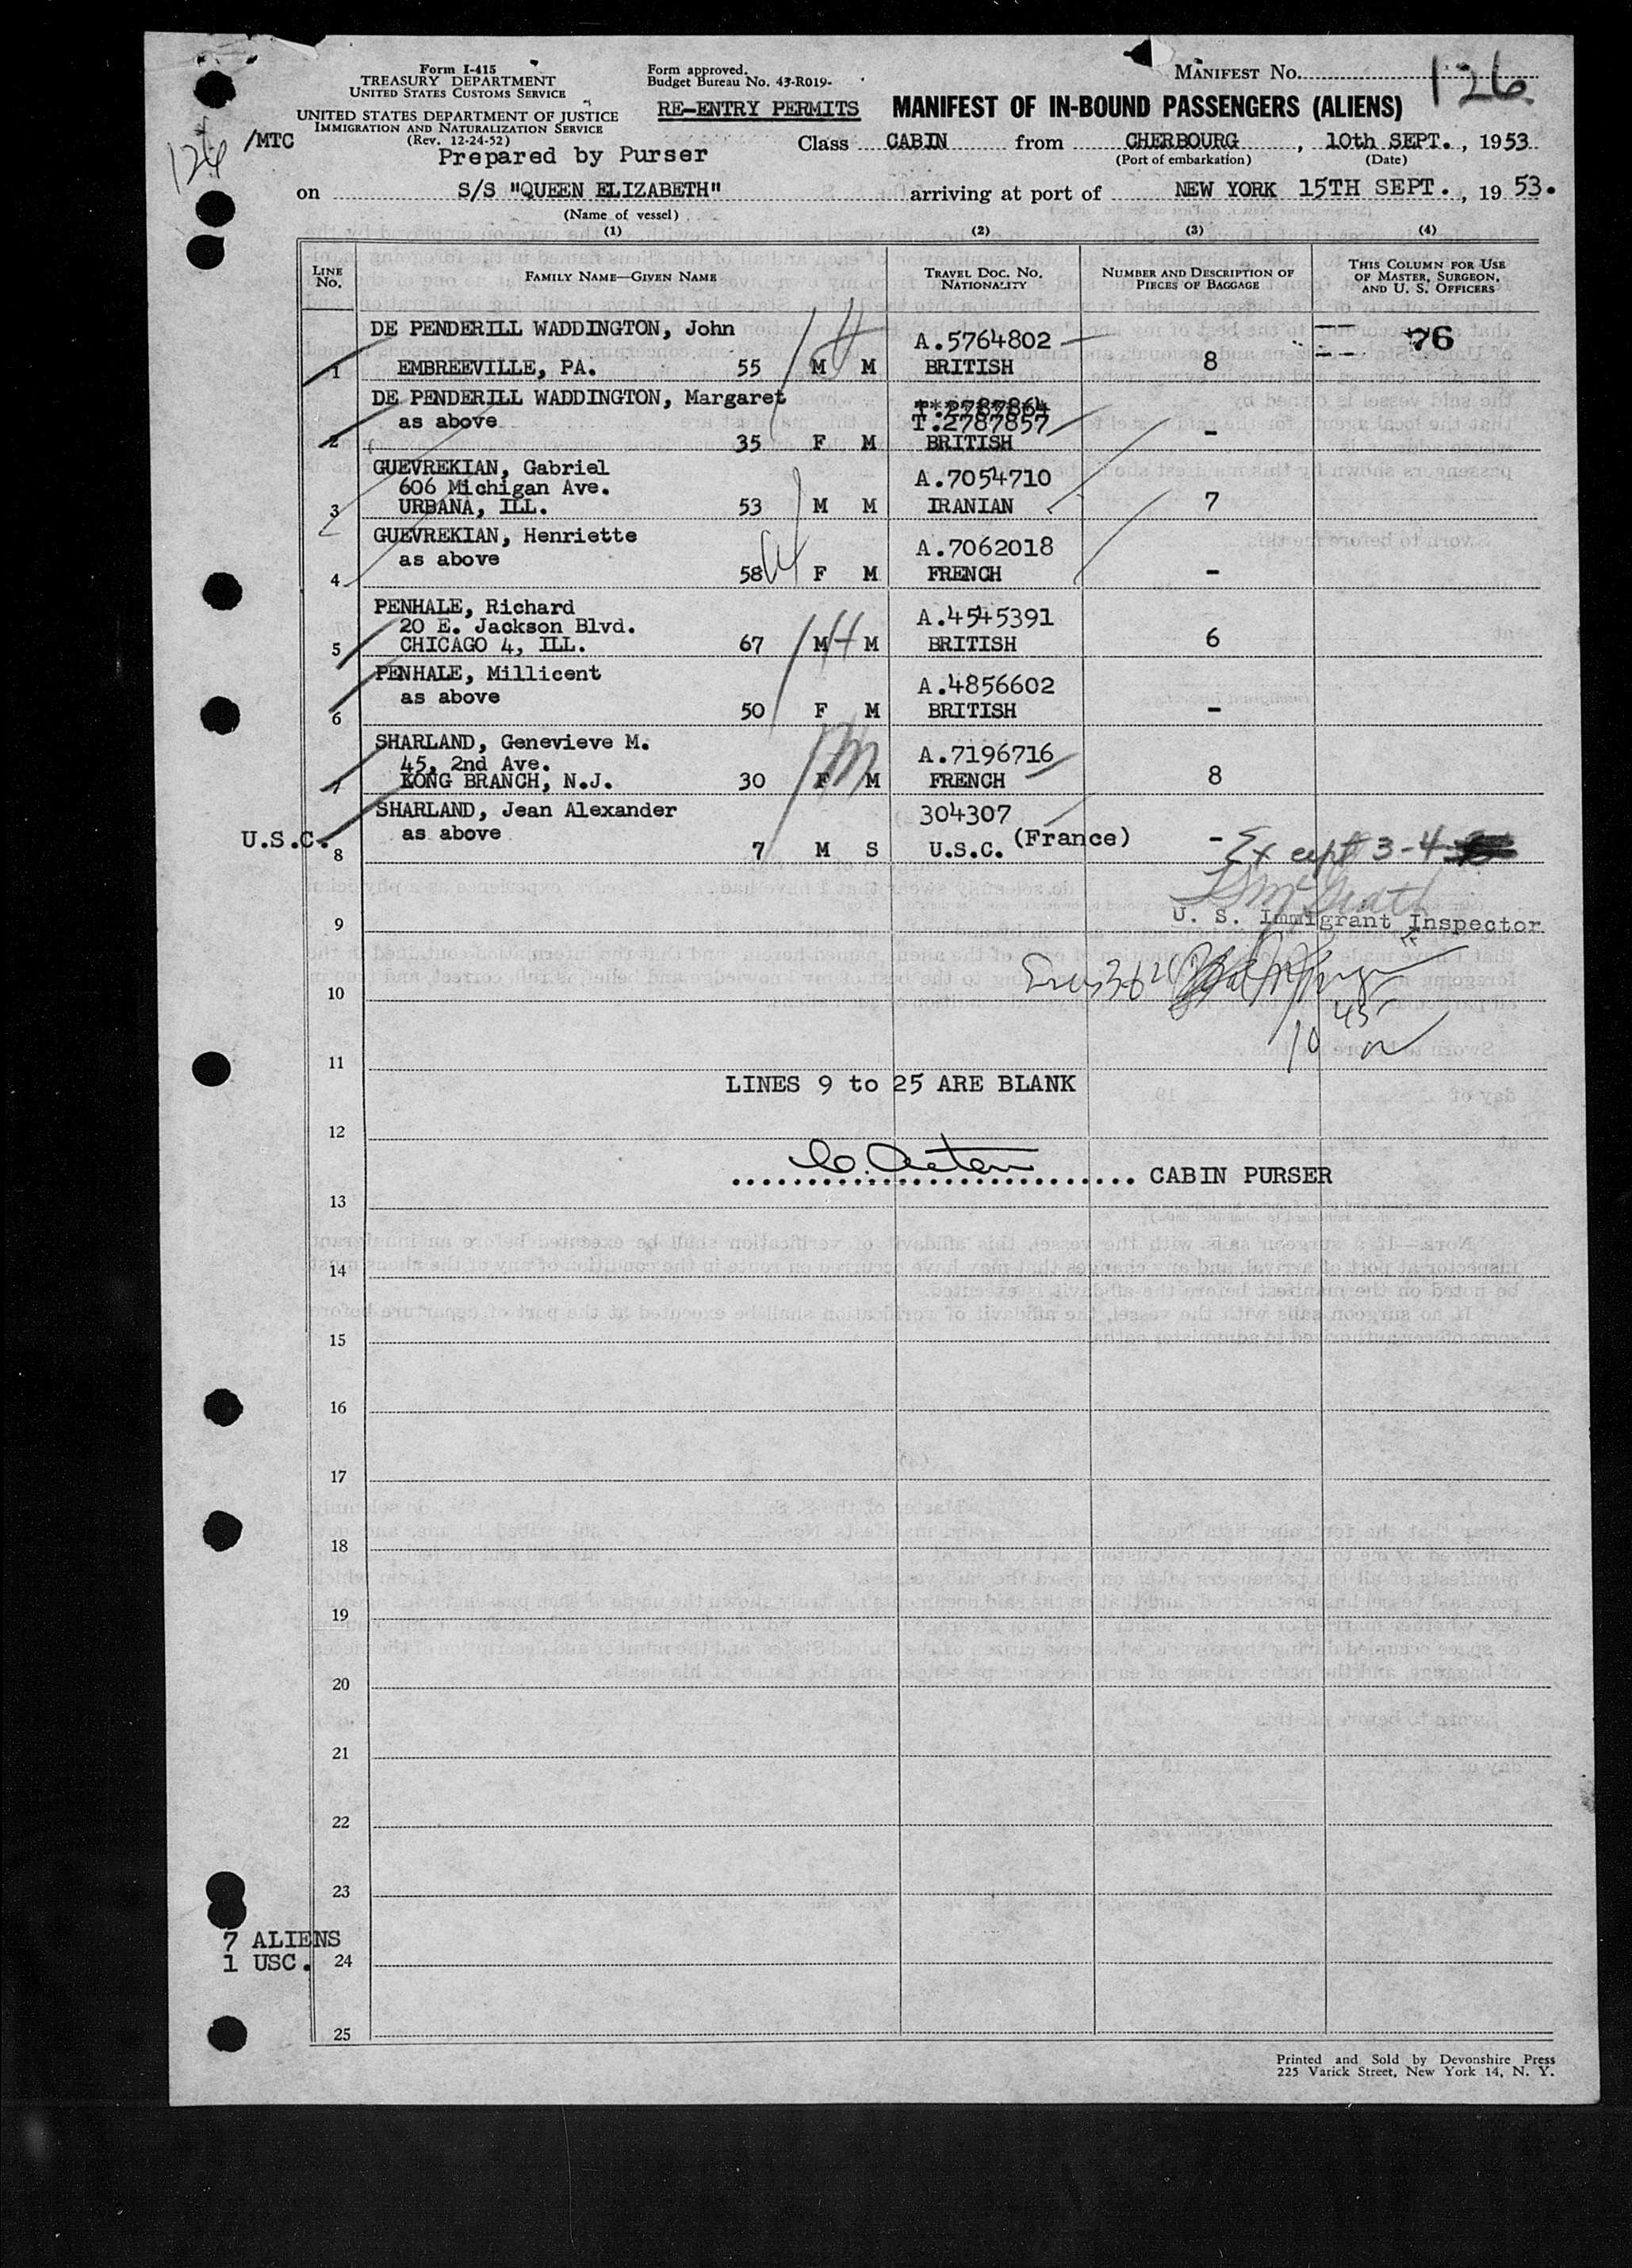 Form I-415
TREASURY DEPARTMENT
UNITED STATES CUSTOMS SERVICE
UNITED STATES DEPARTMENT OF JUSTICE
IMMIGRATION AND NATURALIZATION SERVICE
(Rev. 12-24-52)
Form approved.
Budget Bureau No. 43-R019-
MANIFEST No. 126
RE-ENTRY PERMITS MANIFEST OF IN-BOUND PASSENGERS (ALIENS)
126 /MTC
Prepared by Purser
Class CABIN from CHERBOURG, 10th SEPT., 1953
(Port of embarkation) (Date)
on S/S "QUEEN ELIZABETH" arriving at port of NEW YORK 15TH SEPT., 1953.
(Name of vessel)
(1) (2) (3) (4)
LINE No. FAMILY NAME—GIVEN NAME TRAVEL DOC. No. NATIONALITY NUMBER AND DESCRIPTION OF PIECES OF BAGGAGE THIS COLUMN FOR USE OF MASTER, SURGEON, AND U. S. OFFICERS
DE PENDERILL WADDINGTON, John A.5764802 76
1 EMBREEVILLE, PA. 55 M M BRITISH 8
DE PENDERILL WADDINGTON, Margaret T.2787864
as above T.2787857
2 35 F M BRITISH -
GUEVREKIAN, Gabriel A.7054710
606 Michigan Ave.
3 URBANA, ILL. 53 M M IRANIAN 7
GUEVREKIAN, Henriette A.7062018
as above
4 58 F M FRENCH -
PENHALE, Richard A.4545391
20 E. Jackson Blvd.
5 CHICAGO 4, ILL. 67 M M BRITISH 6
PENHALE, Millicent A.4856602
as above
6 50 F M BRITISH -
SHARLAND, Genevieve M. A.7196716
45, 2nd Ave.
7 KONG BRANCH, N.J. 30 F M FRENCH 8
SHARLAND, Jean Alexander 304307
U.S.C. as above (France)
8 7 M S U.S.C. -
Except 3-4
U. S. Immigrant Inspector
9
10
10 45
11
LINES 9 to 25 ARE BLANK
12
CABIN PURSER
13
14
15
16
17
18
19
20
21
22
23
7 ALIENS
1 USC. 24
25
Printed and Sold by Devonshire Press
225 Varick Street, New York 14, N. Y.